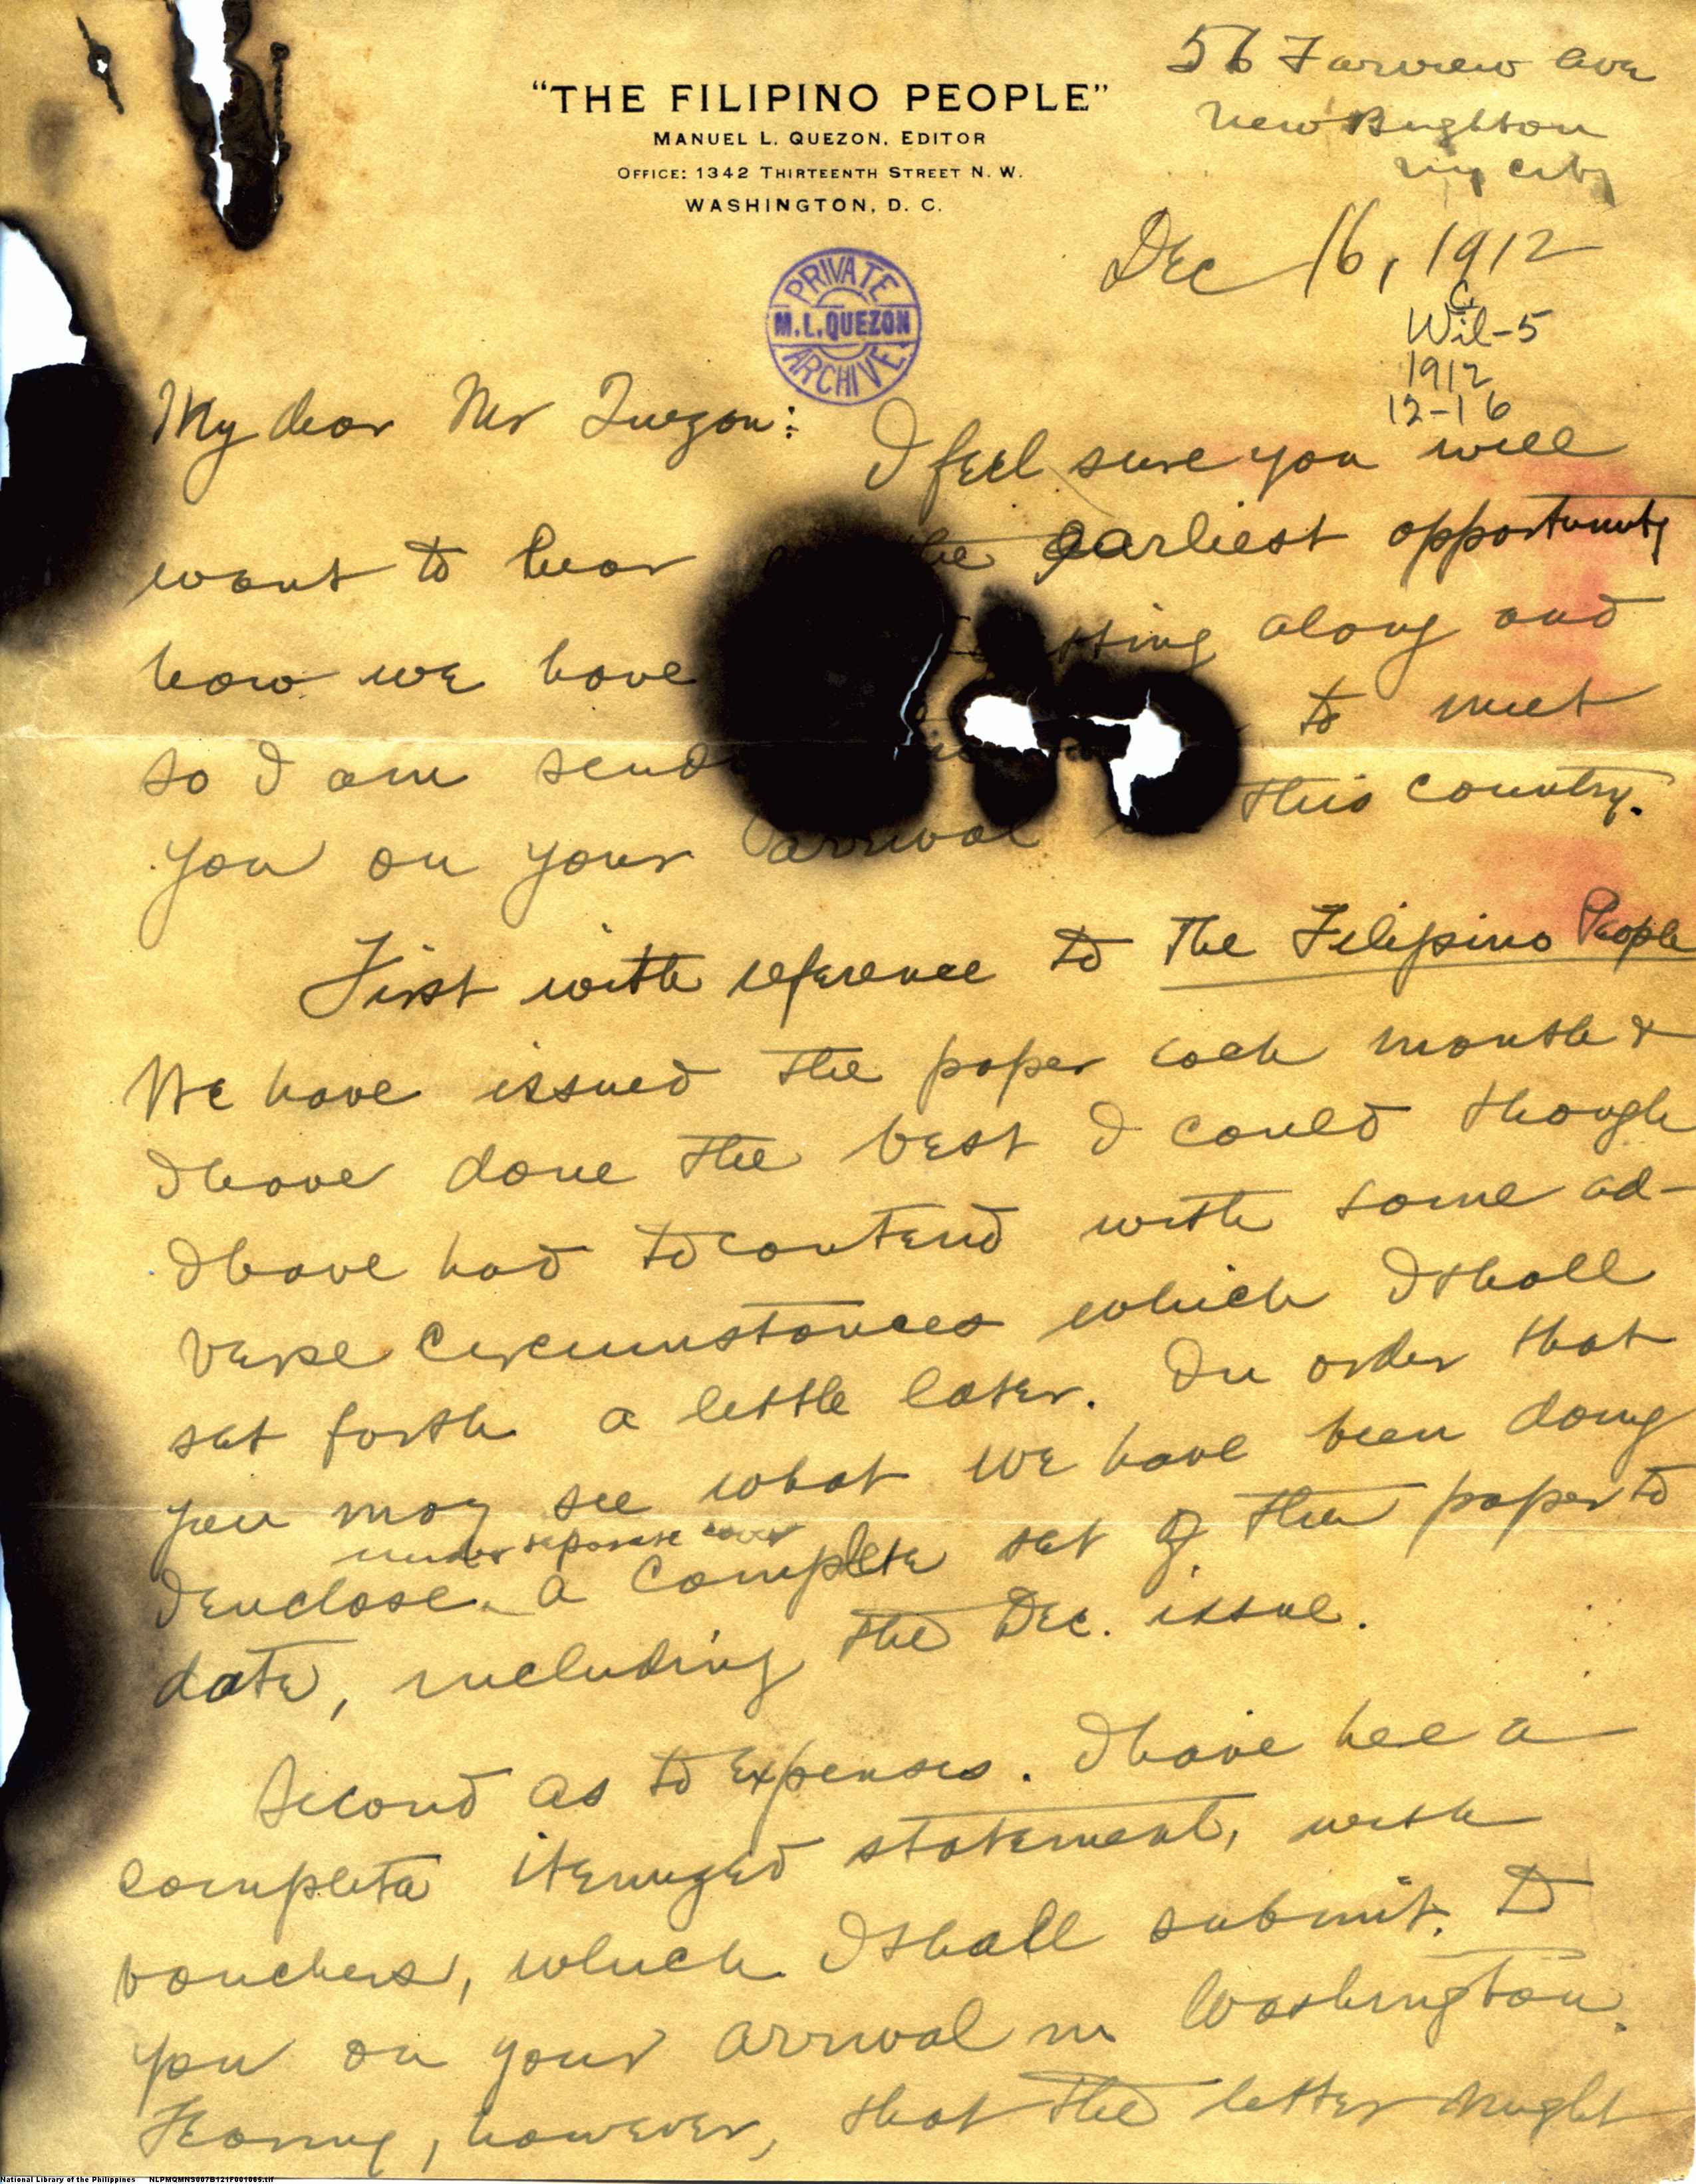 56 Fairview Ave
New Brighton
NY City
"THE FILIPINO PEOPLE"
MANUEL L. QUEZON, EDITOR
OFFICE: 1342 THIRTEENTH STREET N. W.
WASHINGTON, D. C.
Dec 16, 1912
C
Wil-5
1912
12-16
PRIVATE
M. L. QUEZON
ARCHIVE
My dear Mr Quezon:
I feel sure you will
want to hear the earliest opportunity
how we have along and
so I am to meet
you on your arrival this country.
First with reference to The Filipino People
We have issued the paper each month &
I have done the best I could though
I have had to contend with some ad-
verse circumstances which I shall
set forth a little later. In order that
you may see what we have been doing
under separate cover
I enclose a complete set of the paper to
date, including the Dec. issue.
Second as to expenses. I have a
complete itemized statement, with
vouchers, which I shall submit to
you on your arrival in Washington.
however, that the letter might
National Library of the Philippines NLPMQMNS007B121F001065.tif